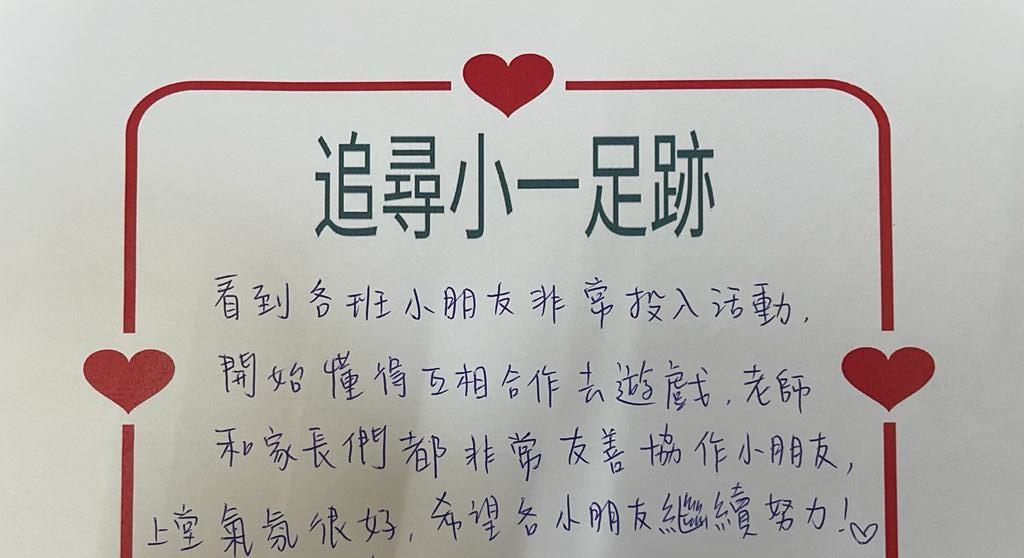 追尋小一足跡
看到各班小朋友非常投入活動，
開始懂得互相合作去遊戲，老師
和家長們都非常友善協作小朋友，
上堂氣氛很好，希望各小朋友繼續努力！♡